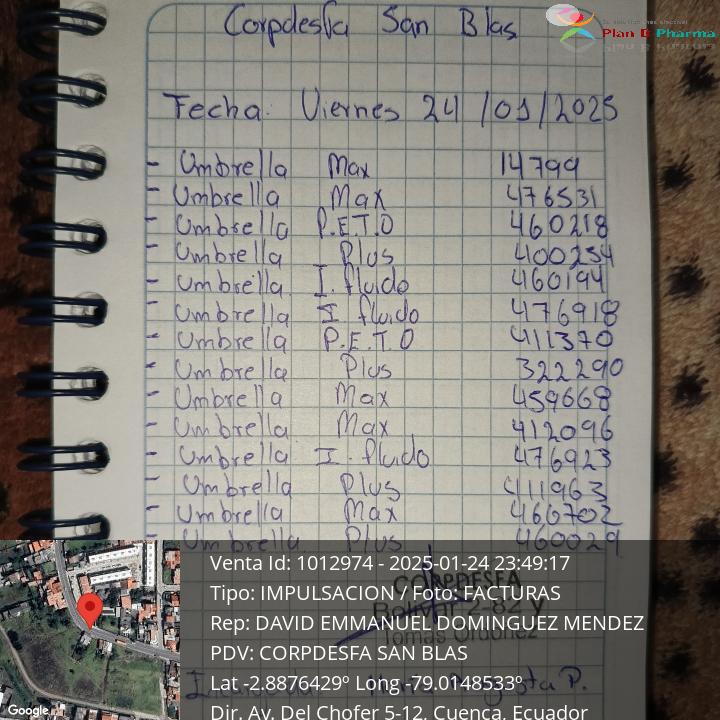 Corpdesfa San Blas
Plan B Pharma
Fecha: Viernes 24/01/2025
- Umbrella Max 14799
- Umbrella Max 476531
- Umbrella P.E.T.O 460218
- Umbrella Plus 400254
- Umbrella I. fluido 460194
- Umbrella I fluido 476918
- Umbrella P.E.T.O 411370
- Umbrella Plus 322290
- Umbrella Max 459668
- Umbrella Max 412096
- Umbrella I. fluido 476923
- Umbrella Plus 411963
- Umbrella Max 460702
- Umbrella Plus 460029
Venta Id: 1012974 - 2025-01-24 23:49:17
CORPDESFA
Tipo: IMPULSACION / Foto: FACTURAS
Bolívar 2-82 y
Rep: DAVID EMMANUEL DOMINGUEZ MENDEZ
Tomas Ordoñez
PDV: CORPDESFA SAN BLAS
Lat -2.8876429º Long -79.0148533º
P.
Dir. Av. Del Chofer 5-12, Cuenca, Ecuador
Google